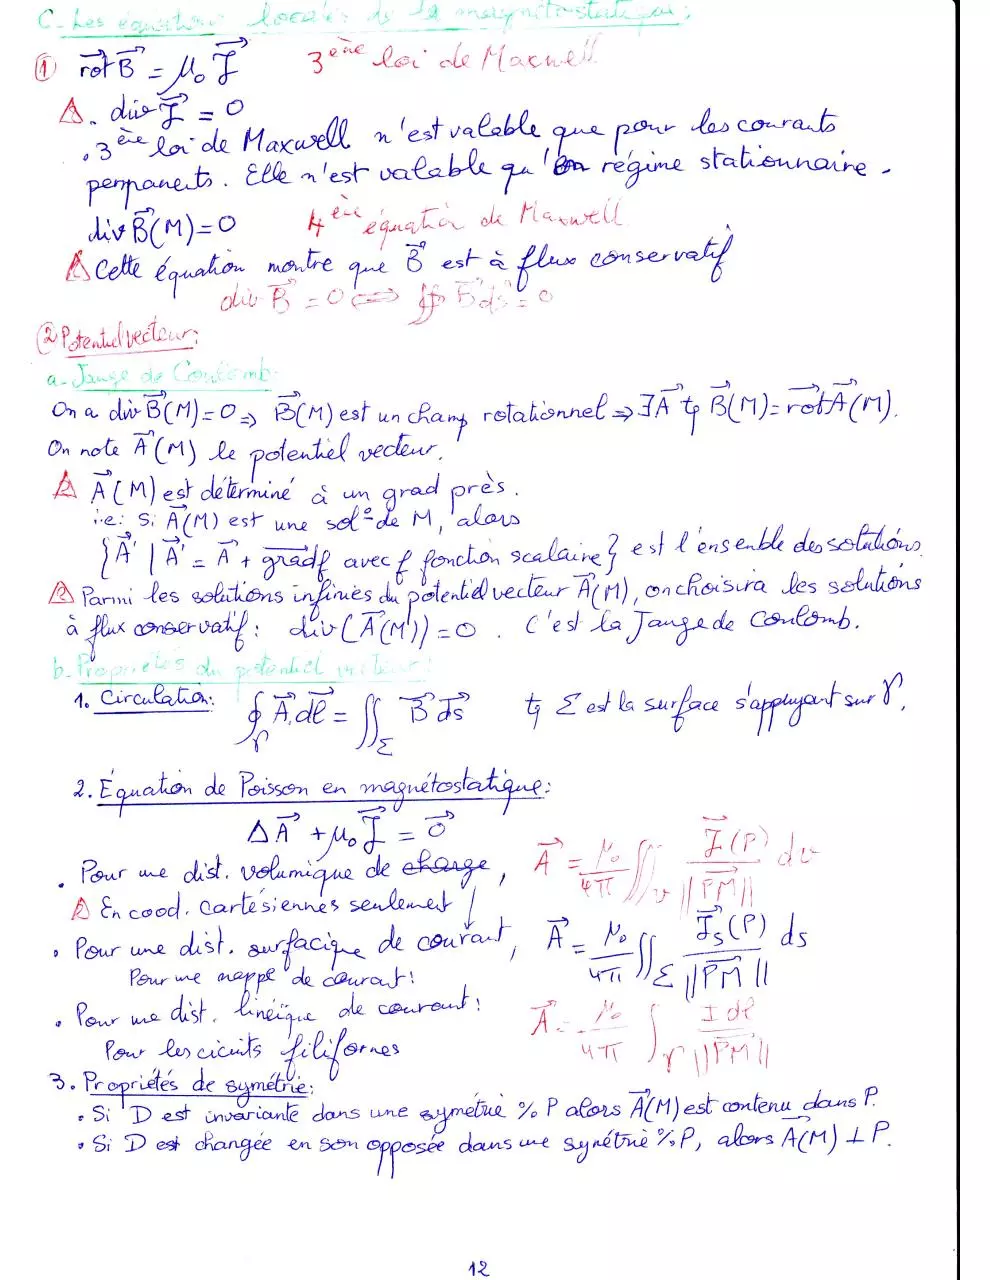 C-Les équations locales de la magnétostatique:
① rot B = μ₀ J⃗ 3ème loi de Maxwell
⚠. div J⃗ = 0
. 3ème loi de Maxwell n'est valable que pour les courants
permanents. Elle n'est valable qu'en régime stationnaire.
div B⃗(M) = 0 4ème équation de Maxwell
⚠ Cette équation montre que B⃗ est à flux conservatif
div B⃗ = 0 ⟺ ∯ B⃗ ds⃗ = 0
② Potentiel vecteur:
a- Jauge de Coulomb:
On a div B⃗(M) = 0 ⇒ B⃗(M) est un champ rotationnel ⇒ ∃ A⃗ tq B⃗(M) = rot A⃗(M).
On note A⃗(M) le potentiel vecteur.
⚠ A⃗(M) est déterminé à un grad près.
i.e: Si A⃗(M) est une sol° de M, alors
{A⃗' | A⃗' = A⃗ + grad f avec f fonction scalaire} est l'ensenble des solutions.
⚠ Parmi les solutions infinies du potentiel vecteur A⃗(M), on choisira les solutions
à flux conservatif: div(A⃗(M)) = 0. C'est la Jauge de Coulomb.
b- Propriétés du potentiel vecteur:
1. Circulation: ∮_Γ A⃗.dl⃗ = ∬_Σ B⃗ ds⃗ tq Σ est la surface s'appuyant sur Γ.
2. Équation de Poisson en magnétostatique:
Δ A⃗ + μ₀ J⃗ = 0⃗
. Pour une dist. volumique de charge, A⃗ = μ₀/4π ∭_v J⃗(P)/||PM|| dv
⚠ En cood. cartésiennes seulement
. Pour une dist. surfacique de courant, A⃗ = μ₀/4π ∬_Σ J⃗s(P)/||PM|| ds
Pour une nappe de courant:
. Pour une dist. linéique de courant: A⃗ = μ₀/4π ∫_Γ I dl/||PM||
Pour les cicuits filifornes
3. Propriétés de symétrie:
. Si D est invariante dans une symétrie % P alors A⃗(M) est contenu dans P.
. Si D est changée en son opposée dans une symétrie % P, alors A⃗(M) ⊥ P.
12